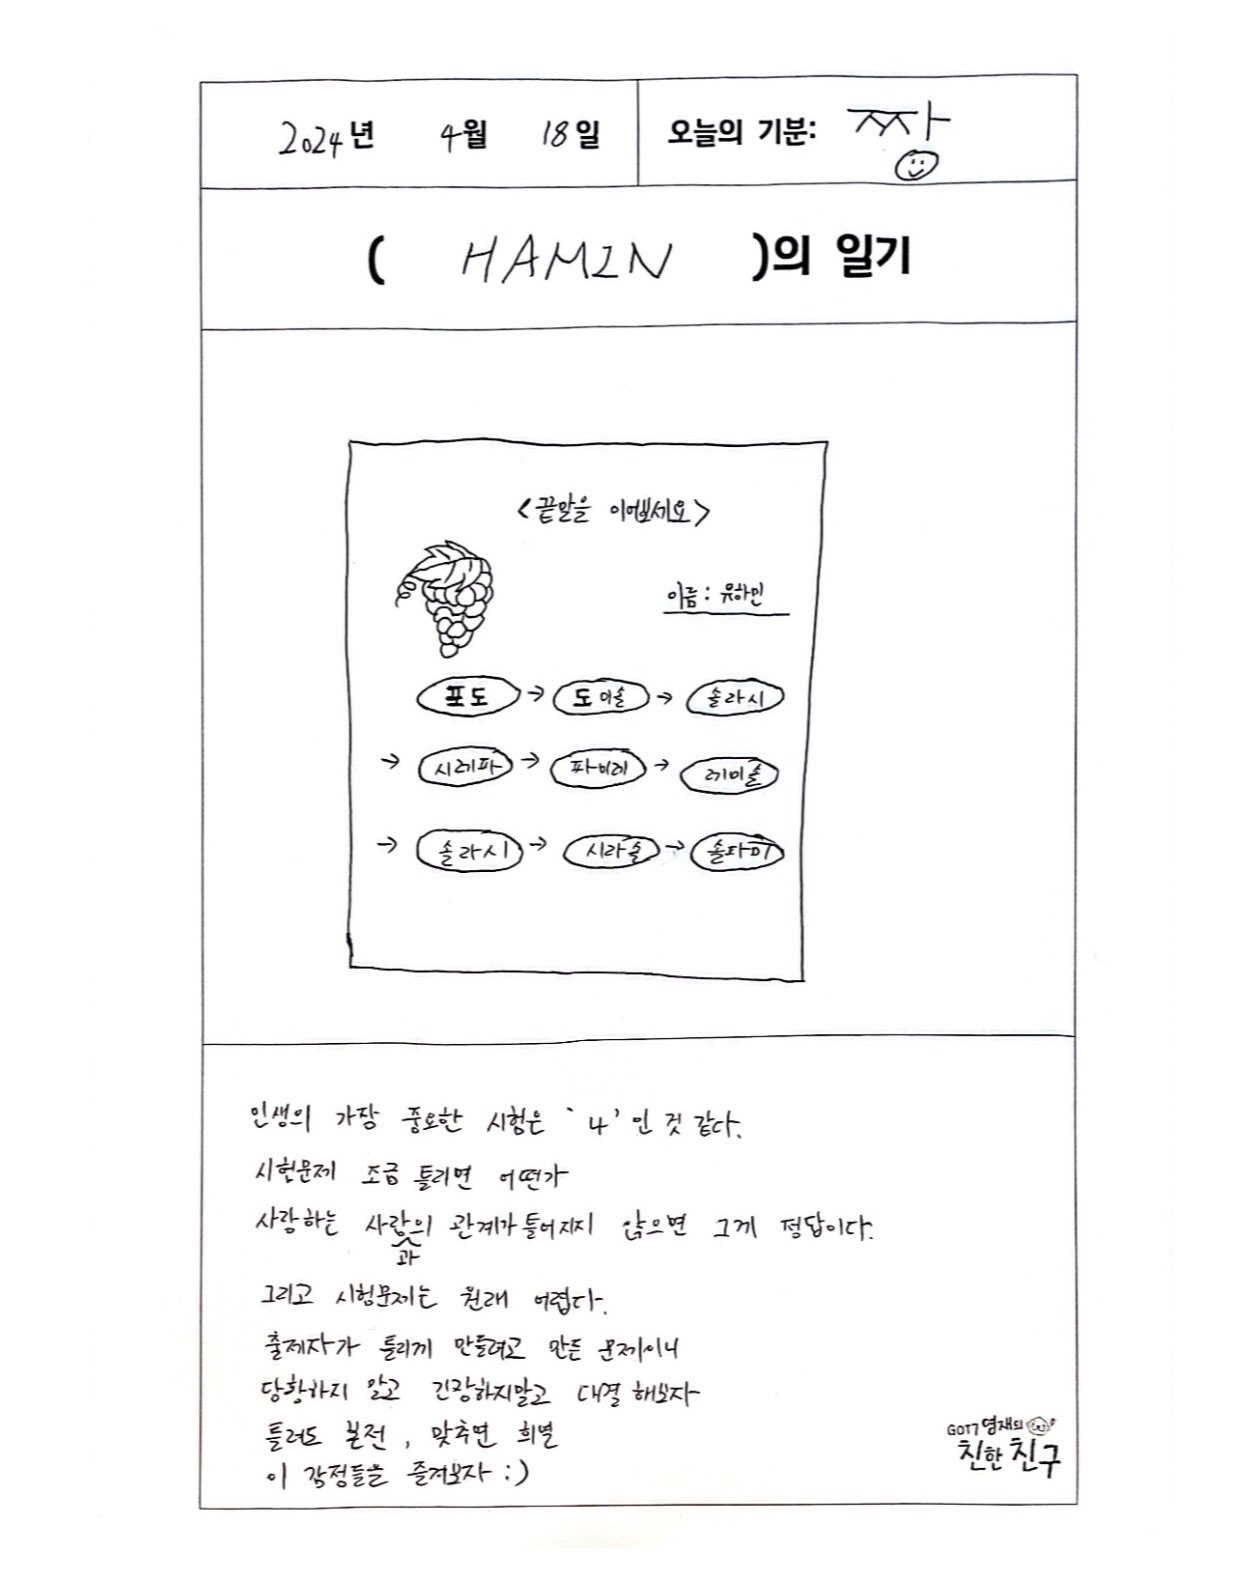 2024년 4월 18일 오늘의 기분: 짱
( HAMIN )의 일기
<끝말을 이어보세요>
이름: 유하민
포도 → 도미솔 → 솔라시
→ 시레파 → 파미레 → 레미솔
→ 솔라시 → 시라솔 → 솔파미
인생의 가장 중요한 시험은 '나'인 것 같다.
시험문제 조금 틀리면 어떤가
사랑하는 사람과의 관계가 틀어지지 않으면 그게 정답이다.
그리고 시험문제는 원래 어렵다.
출제자가 틀리게 만들려고 만든 문제이니
당황하지 않고 긴장하지말고 대결 해보자
틀려도 본전, 맞추면 희열
이 감정들을 즐겨보자 :)
GOT7 영재의
친한친구